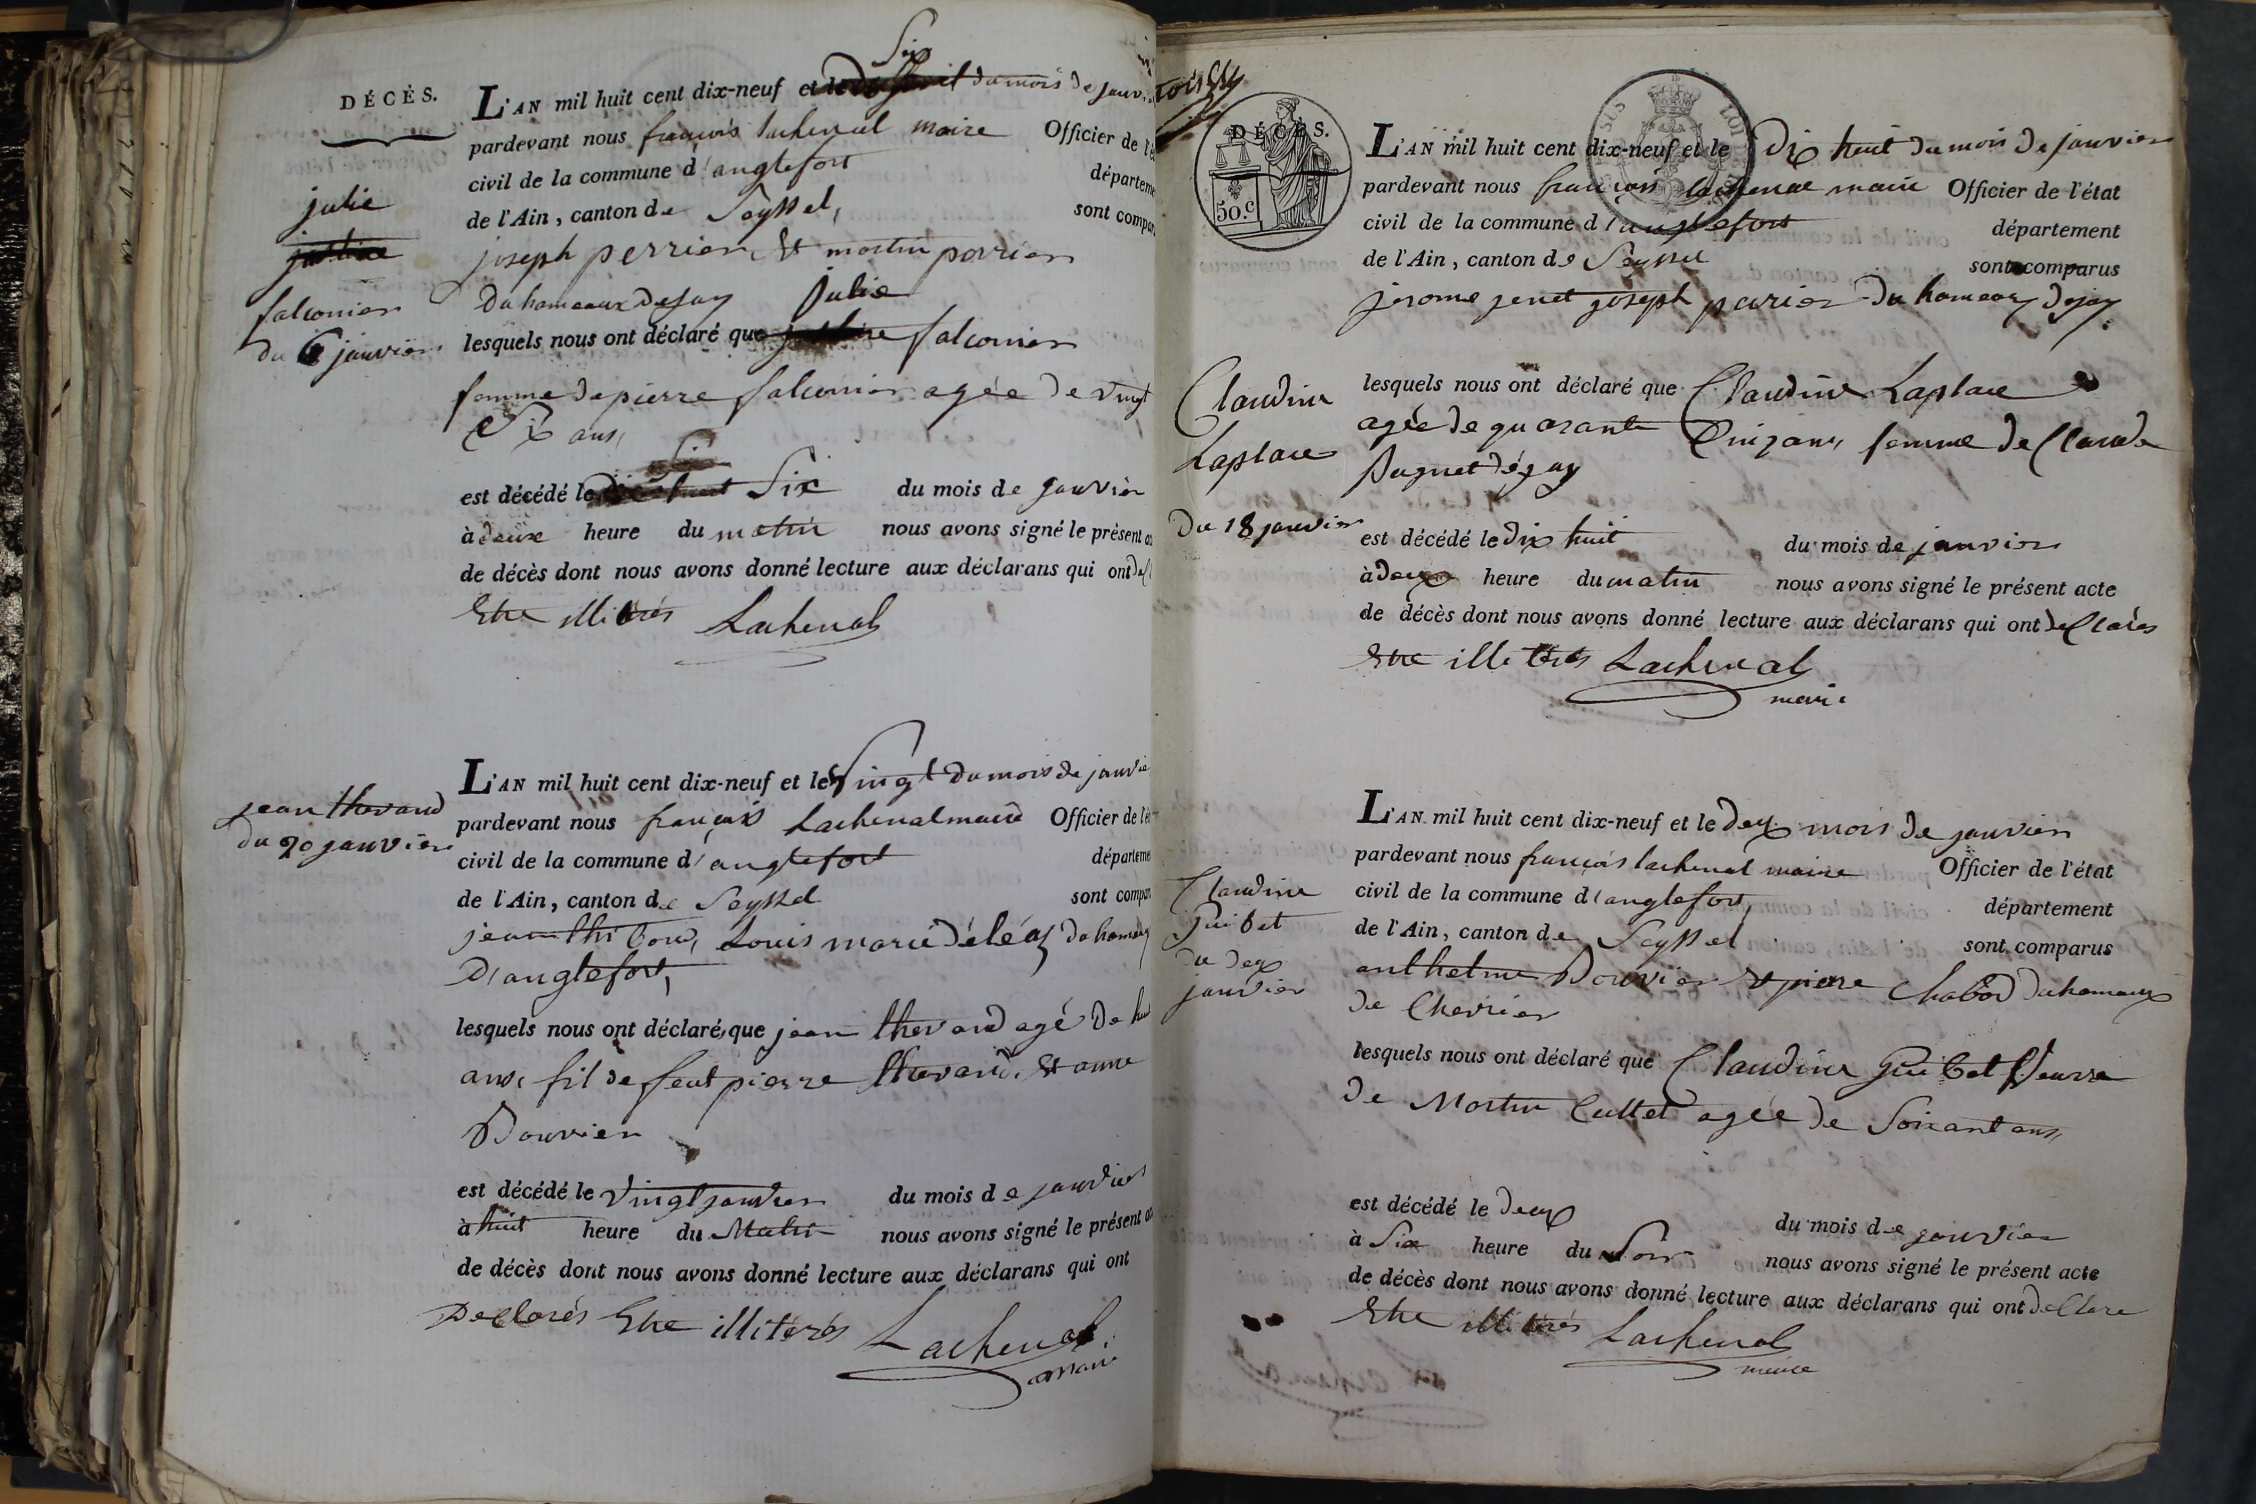 DÉCÈS.
L'AN mil huit cent dix-neuf et le Six du mois de janvi
pardevant nous françois lachenal maire Officier de l'é
civil de la commune d'anglefort départeme
de l'Ain, canton de Seyssel, sont compar
joseph perrier et martin perrier
Du hameaux De jay julie
lesquels nous ont déclaré que falconier
femme de pierre falconier agée de vingt
Six ans,
est décédé le Six du mois de janvier
à deux heure du matin nous avons signé le présent a
de décès dont nous avons donné lecture aux déclarans qui ont
Etre illiterés Lachenal
julie
falconier
du 6 janvier
L'AN mil huit cent dix-neuf et le Vingt du mois de janvie
pardevant nous françois Lachenal maire Officier de l'é
civil de la commune d'anglefort départeme
de l'Ain, canton de Seyssel sont compar
jean Louis marie déléaz du hameau
D'anglefort,
lesquels nous ont déclaré que jean thevand agé De
ans, fil de feut pierre thevand, et anne
Bouvier
est décédé le vingt janvier du mois de janvier
à huit heure du Matin nous avons signé le présent a
de décès dont nous avons donné lecture aux déclarans qui ont
Declarés Etre illiterés Lachenal
maire
jean thevand
du 20 janvier
DÉCÈS.
50.c
L'AN mil huit cent dix-neuf et le Dix huit du mois de janvier
pardevant nous françois lachenal maire Officier de l'état
civil de la commune d'anglefort département
de l'Ain, canton de Seyssel sont comparus
jerome jenet joseph perier du hameaux De jay
lesquels nous ont déclaré que Claudine Laplace
agée de quarante Cinq ans, femme de Claude
Pugnet
est décédé le Dix huit du mois de janvier
à deux heure du matin nous avons signé le présent acte
de décès dont nous avons donné lecture aux déclarans qui ont declarés
Etre illiterés Lachenal
maire
Claudine
Laplace
du 18 janvier
L'AN mil huit cent dix-neuf et le deux mois de janvier
pardevant nous françois lachenal maire Officier de l'état
civil de la commune d'anglefort, département
de l'Ain, canton de Seyssel sont comparus
anthelme Bouvier et pierre Chabod du hameaux
de Chevrier
lesquels nous ont déclaré que Claudine Guibet Veuve
de Martin Cullet agée de Soixant ans,
est décédé le deux du mois de janvier
à Six heure du Soir nous avons signé le présent acte
de décès dont nous avons donné lecture aux déclarans qui ont declare
Etre illiterés Lachenal
maire
Claudine
Guibet
du deux
janvier